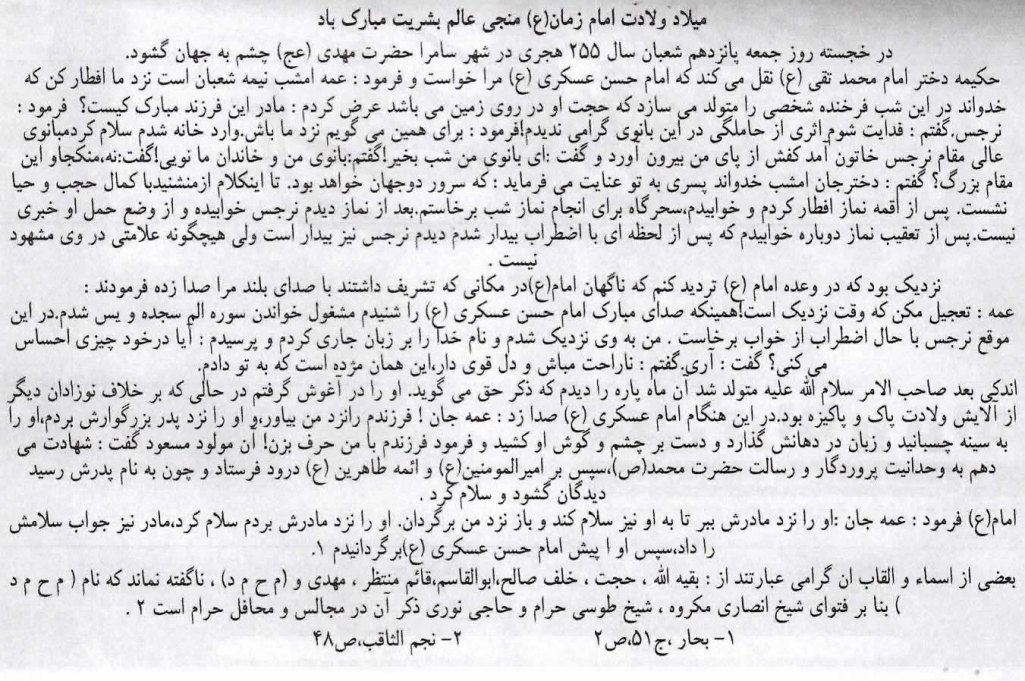 میلاد ولادت امام زمان(ع) منجی عالم بشریت مبارک باد
در خجسته روز جمعه پانزدهم شعبان سال ۲۵۵ هجری در شهر سامرا حضرت مهدی (عج) چشم به جهان گشود.
حکیمه دختر امام محمد تقی (ع) نقل می کند که امام حسن عسکری (ع) مرا خواست و فرمود : عمه امشب نیمه شعبان است نزد ما افطار کن که
خدواند در این شب فرخنده شخصی را متولد می سازد که حجت او در روی زمین می باشد عرض کردم : مادر این فرزند مبارک کیست؟ فرمود :
نرجس.گفتم : فدایت شوم اثری از حاملگی در این بانوی گرامی ندیدم!فرمود : برای همین می گویم نزد ما باش.وارد خانه شدم سلام کردمبانوی
عالی مقام نرجس خاتون آمد کفش از پای من بیرون آورد و گفت :ای بانوی من شب بخیر!گفتم:بانوی من و خاندان ما تویی!گفت:نه،منکجاو این
مقام بزرگ؟ گفتم : دخترجان امشب خدواند پسری به تو عنایت می فرماید : که سرور دوجهان خواهد بود. تا اینکلام ازمنشنیدبا کمال حجب و حیا
نشست. پس از اقمه نماز افطار کردم و خوابیدم،سحرگاه برای انجام نماز شب برخاستم.بعد از نماز دیدم نرجس خوابیده و از وضع حمل او خبری
نیست.پس از تعقیب نماز دوباره خوابیدم که پس از لحظه ای با اضطراب بیدار شدم دیدم نرجس نیز بیدار است ولی هیچگونه علامتی در وی مشهود
نیست .
نزدیک بود که در وعده امام (ع) تردید کنم که ناگهان امام(ع)در مکانی که تشریف داشتند با صدای بلند مرا صدا زده فرمودند :
عمه : تعجیل مکن که وقت نزدیک است!همینکه صدای مبارک امام حسن عسکری (ع) را شنیدم مشغول خواندن سوره الم سجده و یس شدم.در این
موقع نرجس با حال اضطراب از خواب برخاست . من به وی نزدیک شدم و نام خدا را بر زبان جاری کردم و پرسیدم : آیا درخود چیزی احساس
می کنی؟ گفت : آری.گفتم : ناراحت مباش و دل قوی دار،این همان مژده است که به تو دادم.
اندکی بعد صاحب الامر سلام الله علیه متولد شد آن ماه پاره را دیدم که ذکر حق می گوید. او را در آغوش گرفتم در حالی که بر خلاف نوزادان دیگر
از آلایش ولادت پاک و پاکیزه بود.در این هنگام امام عسکری (ع) صدا زد : عمه جان ! فرزندم رانزد من بیاور،و او را نزد پدر بزرگوارش بردم،او را
به سینه چسبانید و زبان در دهانش گذارد و دست بر چشم و گوش او کشید و فرمود فرزندم با من حرف بزن! آن مولود مسعود گفت : شهادت می
دهم به وحدانیت پروردگار و رسالت حضرت محمد(ص)،سپس بر امیرالمومنین(ع) و ائمه طاهرین (ع) درود فرستاد و چون به نام پدرش رسید
دیدگان گشود و سلام کرد .
امام(ع) فرمود : عمه جان :او را نزد مادرش ببر تا به او نیز سلام کند و باز نزد من برگردان. او را نزد مادرش بردم سلام کرد،مادر نیز جواب سلامش
را داد،سپس او ا پیش امام حسن عسکری (ع)برگردانیدم ۱.
بعضی از اسماء و القاب ان گرامی عبارتند از : بقیه الله ، حجت ، خلف صالح،ابوالقاسم،قائم منتظر ، مهدی و (م ح م د) ، ناگفته نماند که نام ( م ح م د
) بنا بر فتوای شیخ انصاری مکروه ، شیخ طوسی حرام و حاجی نوری ذکر آن در مجالس و محافل حرام است ۲ .
۱- بحار ،ج۵۱،ص۲ ۲- نجم الثاقب،ص۴۸